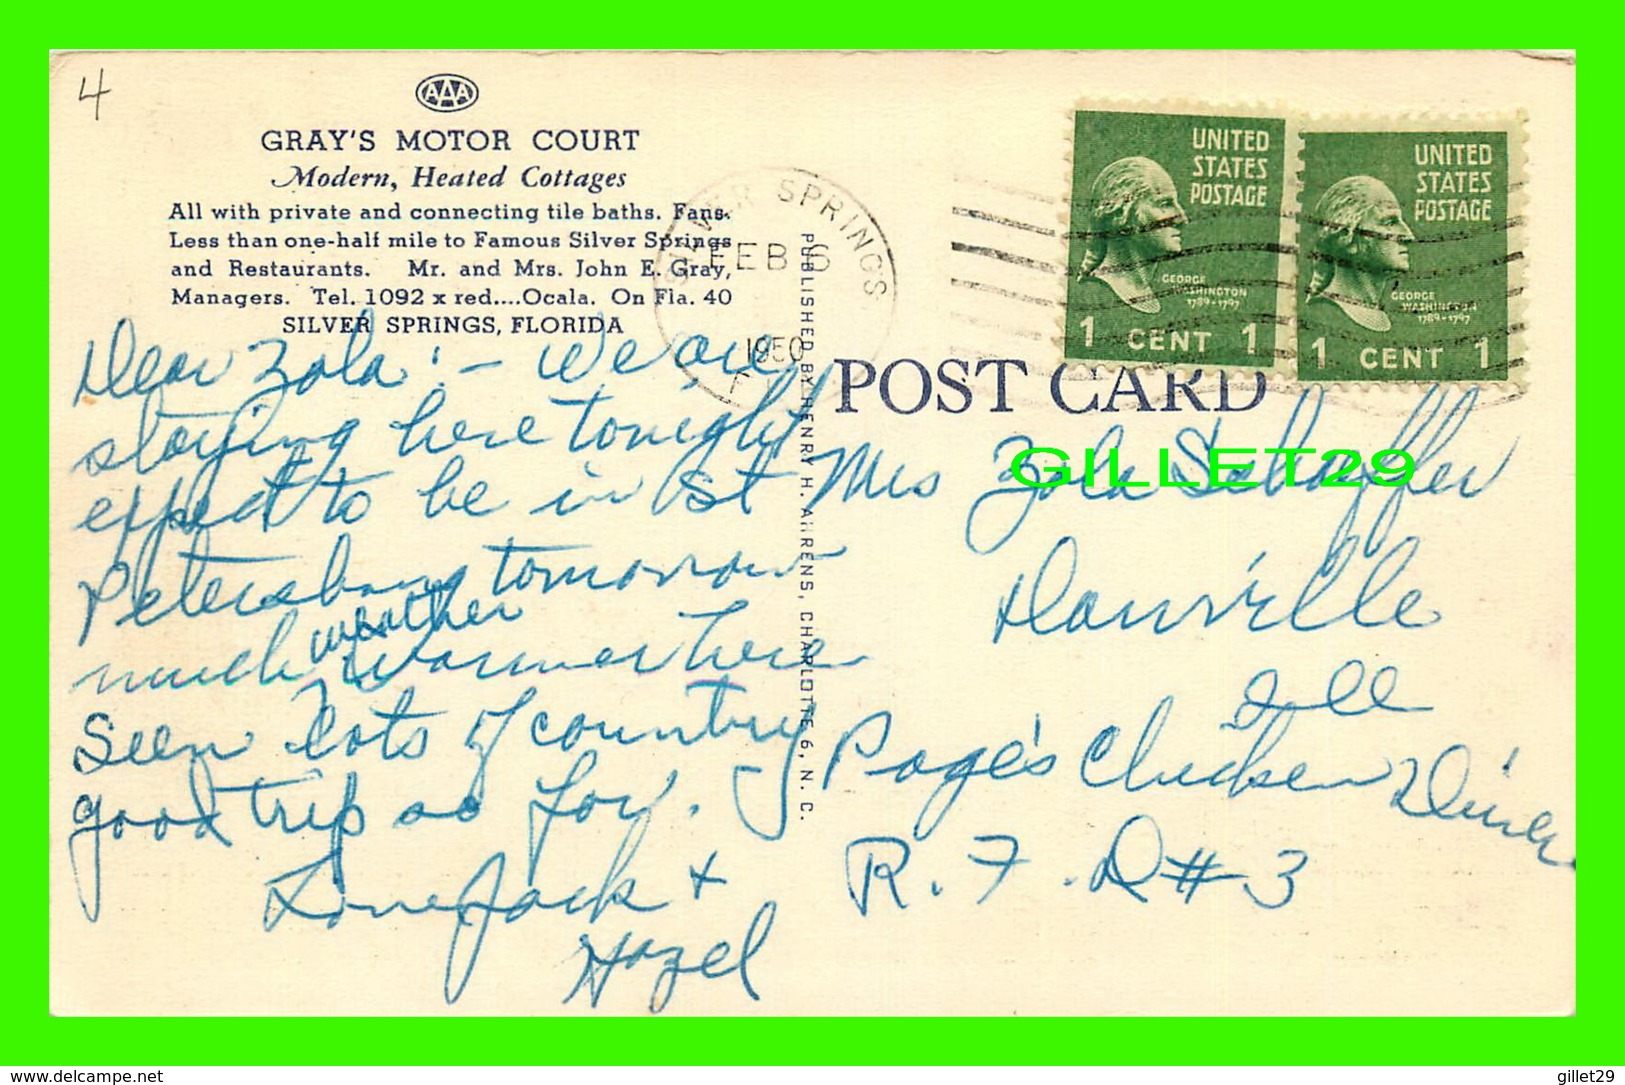 4
AAA
GRAY'S MOTOR COURT
Modern, Heated Cottages
All with private and connecting tile baths. Fans.
Less than one-half mile to Famous Silver Springs
and Restaurants. Mr. and Mrs. John E. Gray,
Managers. Tel. 1092 x red....Ocala. On Fla. 40
SILVER SPRINGS, FLORIDA
SILVER SPRINGS
FEB 6
1950
UNITED
STATES
POSTAGE
GEORGE
WASHINGTON
1789-1797
1 CENT 1
UNITED
STATES
POSTAGE
GEORGE
WASHINGTON
1789-1797
1 CENT 1
POST CARD
PUBLISHED BY HENRY H. AHRENS, CHARLOTTE 6, N. C.
Dear Zola :- We are
staying here tonight
expect to be in St
Petersburg tomorrow
much weather warmer here
Seen lots of country
good trip so far.
Love Jack +
Hazel
Mrs Zola Schaffer
Danville
Ill
Page's Chicken Diner
R.F.D #3
GILLET29
www.delcampe.net
gillet29